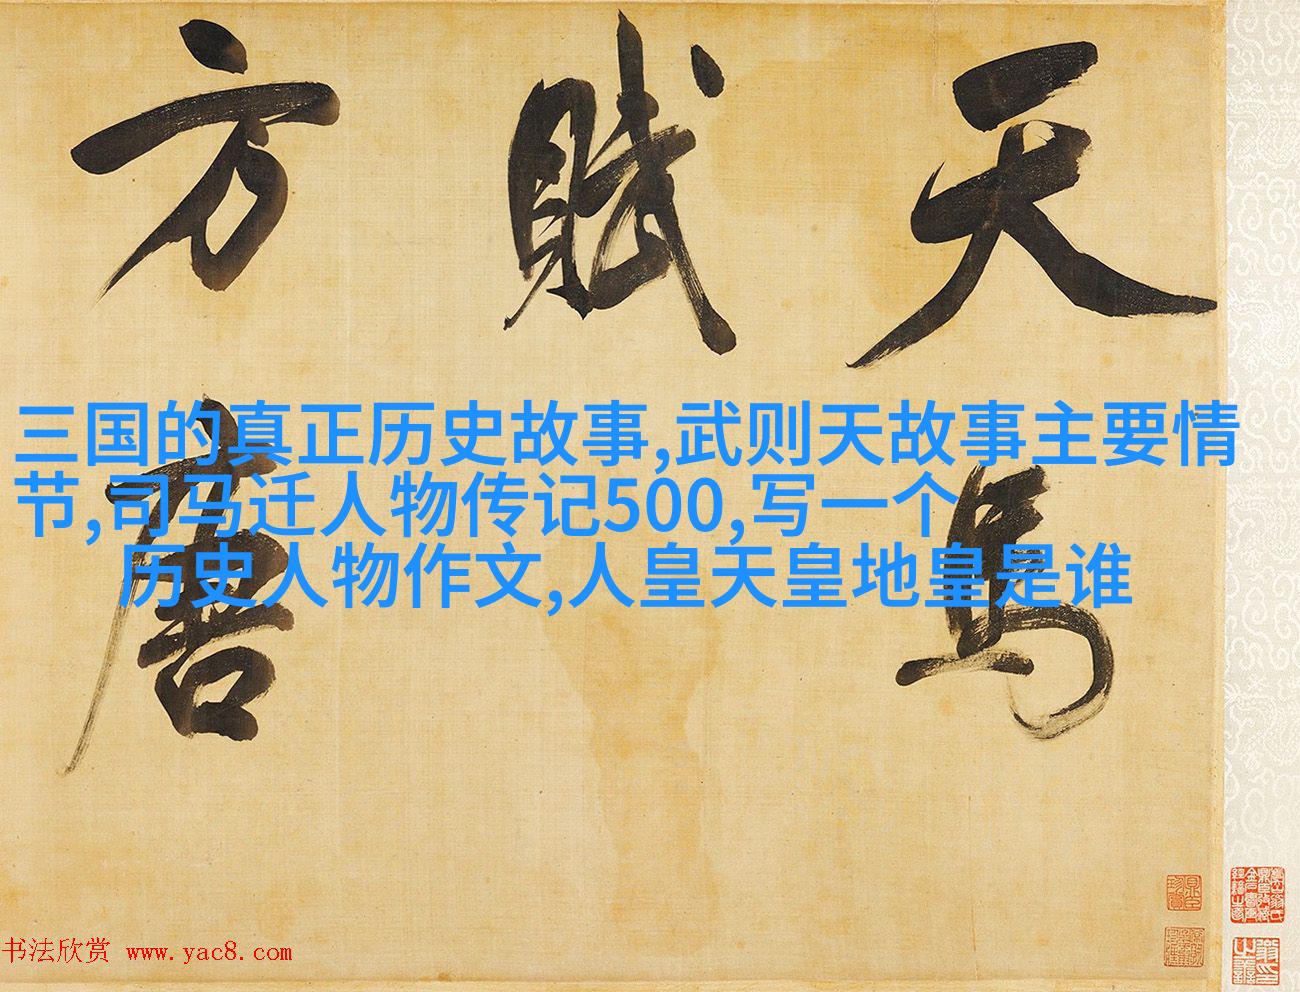 天馬
賦
方唐
三国的真正历史故事,武则天故事主要情
节,司马迁人物传记500,写一个
历史人物作文,人皇天皇地皇是谁
书法欣赏 www.yac8.com